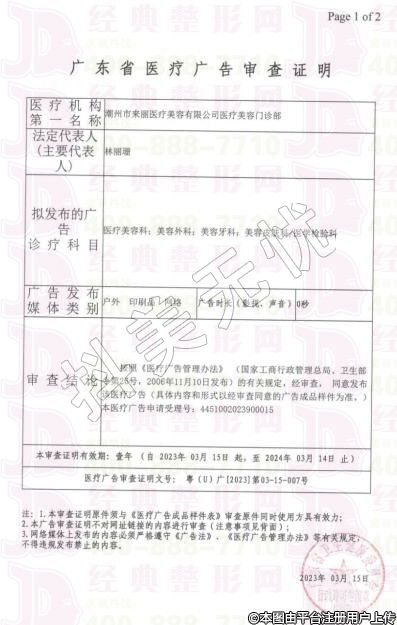 Page 1 of 2
广东省医疗广告审查证明
医疗机构
第一名称
潮州市来丽医疗美容有限公司医疗美容门诊部
法定代表人
(主要代表
人)
林丽珊
拟发布的广
告
诊疗科目
医疗美容科；美容外科；美容牙科；美容皮肤科/医学检验科
广告发布
媒体类别
户外 印刷品 网络
广告时长（影视、声音）0秒
审查结论
按照《医疗广告管理办法》（国家工商行政管理总局、卫生部
令第26号，2006年11月10日发布）的有关规定，经审查，同意发布
该医疗广告（具体内容和形式以经审查同意的广告成品样件为准。）
本医疗广告申请受理号：4451002023900015
本审查证明有效期：壹年（自 2023年 03月 15日 起，至 2024年 03月 14日 止）
医疗广告审查证明文号：粤（U）广[2023]第03-15-007号
注：1.本审查证明原件须与《医疗广告成品样件表》审查原件同时使用方具有效力；
2.本广告审查证明不对网址链接的内容进行审查（注意事项见背面）；
3.网络媒体上发布的内容必须严格遵守《广告法》、《医疗广告管理办法》等有关规定，
不得违规发布禁止的内容。
2023年 03月 15日
抖美无忧
经典整形网
400-888-7710
©本图由平台注册用户上传